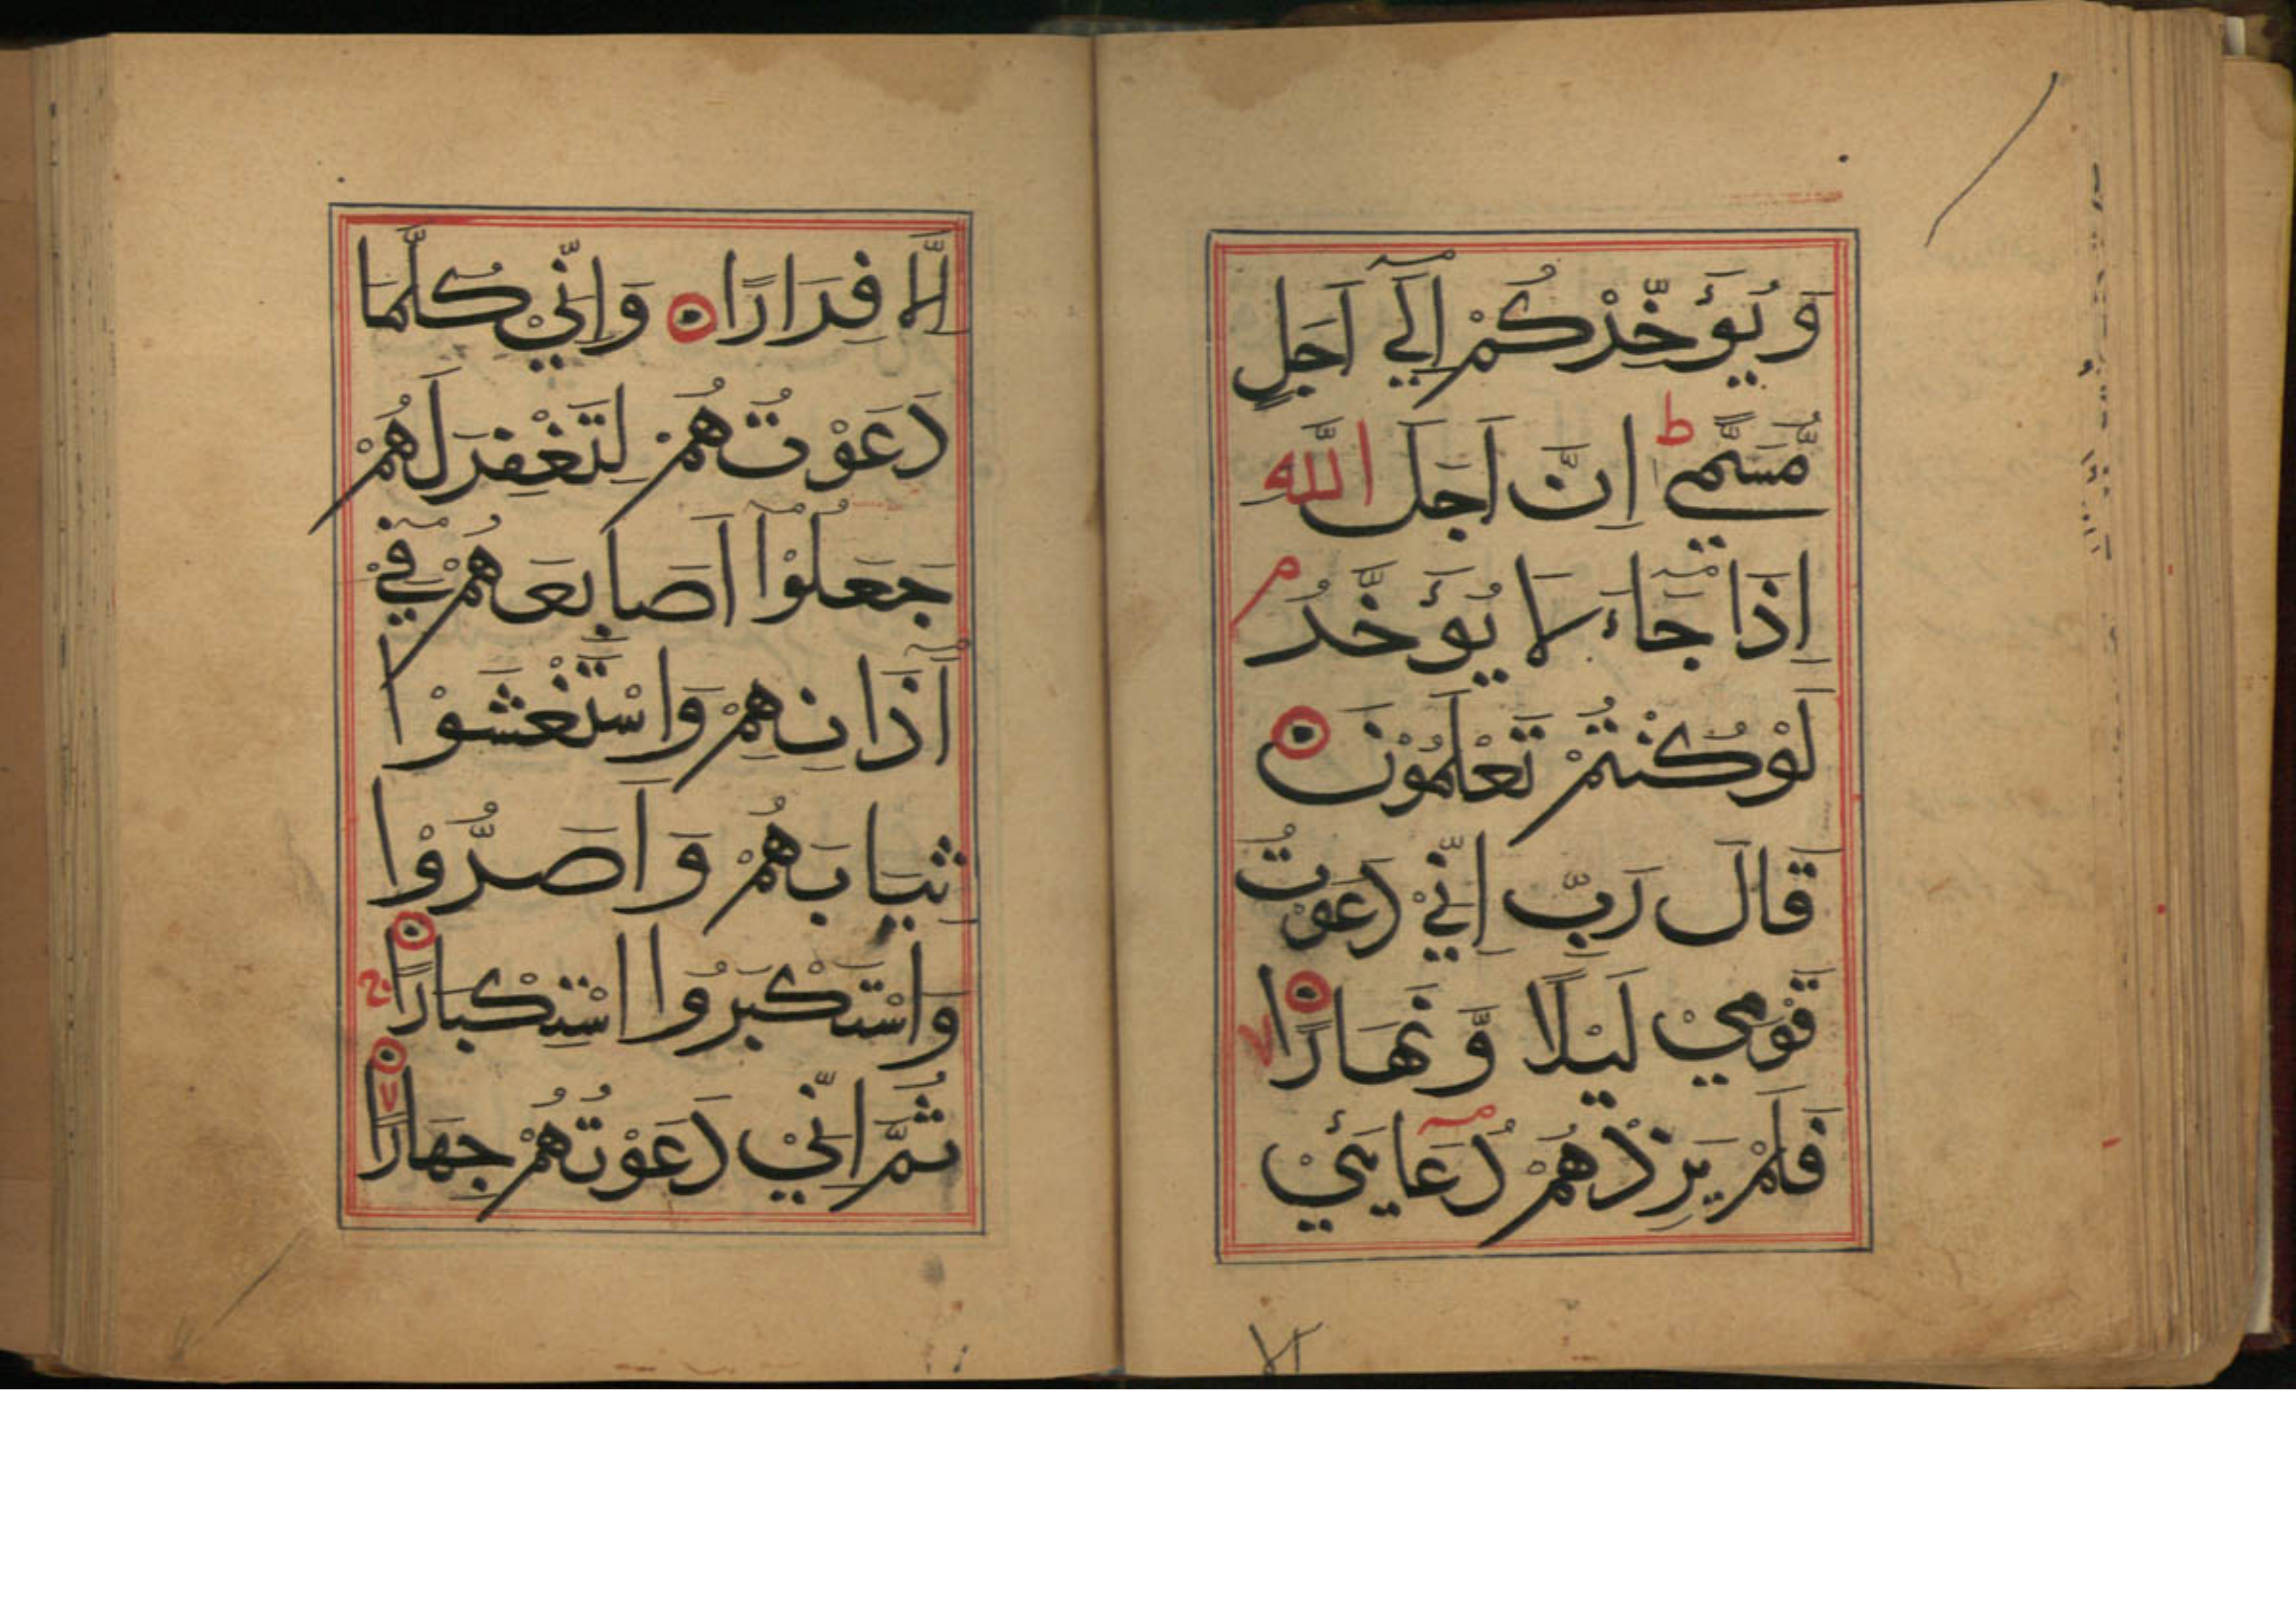 وَ يُؤَخِّرْكُمْ اِلٰٓي اَجَلٍ
مُّسَمًّي ط اِنَّ اَجَلَ اللّٰهِ
اِذَا جَآءَ لَا يُؤَخَّرُ م
لَوْ كُنْتُمْ تَعْلَمُوْنَ
قَالَ رَبِّ اِنِّيْ دَعَوْتُ
قَوْمِيْ لَيْلًا وَّ نَهَارًا
فَلَمْ يَزِدْهُمْ دُعَآئِيْ
اِلَّا فِرَارًا وَ اِنِّيْ كُلَّمَا
دَعَوْتُهُمْ لِتَغْفِرَ لَهُمْ
جَعَلُوْٓا اَصَابِعَهُمْ فِيْٓ
اٰذَانِهِمْ وَاسْتَغْشَوْا
ثِيَابَهُمْ وَ اَصَرُّوْا
وَاسْتَكْبَرُوا اسْتِكْبَارًا
ثُمَّ اِنِّيْ دَعَوْتُهُمْ جِهَارًا